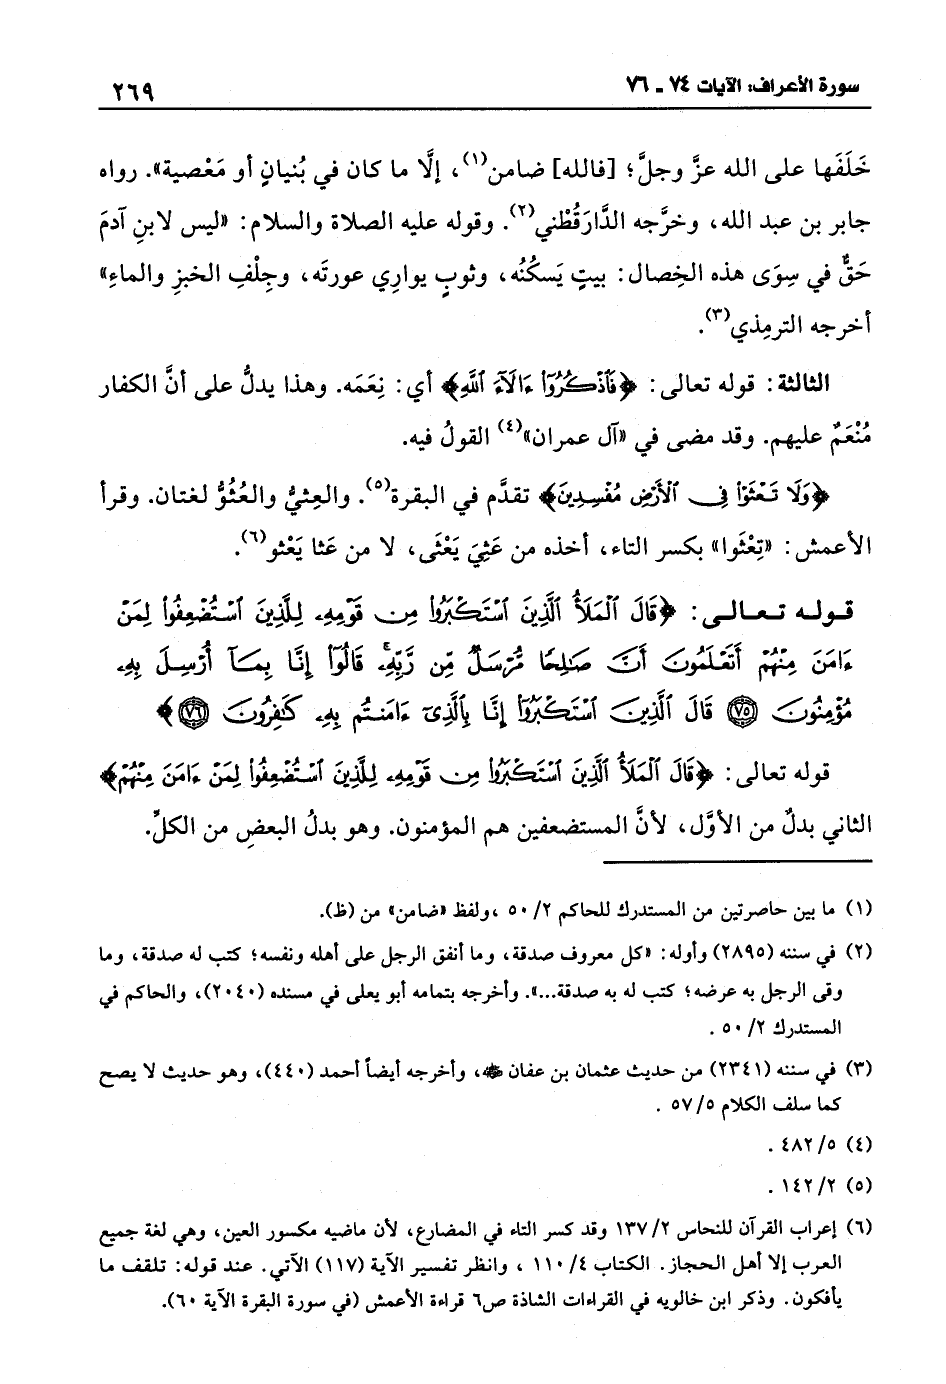 سورة الأعراف: الآيات ٧٤ - ٧٦
٢٦٩
خَلَفَها على الله عزَّ وجلَّ؛ [فالله] ضامن(١)، إلَّا ما كان في بُنيانٍ أو مَعْصية». رواه
جابر بن عبد الله، وخرَّجه الدَّارَقُطْني(٢). وقوله عليه الصلاة والسلام: «ليس لابنِ آدمَ
حَقٌّ في سِوَى هذه الخِصال: بيتٍ يَسكُنُه، وثوبٍ يوارِي عورتَه، وجِلْفِ الخبزِ والماءِ»
أخرجه الترمِذي(٣).
الثالثة: قوله تعالى: ﴿فَٱذْكُرُوٓا۟ ءَالَآءَ ٱللَّهِ﴾ أي: نِعَمَه. وهذا يدلُّ على أنَّ الكفار
مُنْعَمٌ عليهم. وقد مضى في «آل عمران»(٤) القولُ فيه.
﴿وَلَا تَعْثَوْا۟ فِى ٱلْأَرْضِ مُفْسِدِينَ﴾ تقدَّم في البقرة(٥). والعِثيُّ والعُثُوُّ لغتان. وقرأ
الأعمش: «تِعْثَوا» بكسر التاء، أخذه من عَثِيَ يَعْثَى، لا من عَثا يَعْثو(٦).
قوله تعالى: ﴿قَالَ ٱلْمَلَأُ ٱلَّذِينَ ٱسْتَكْبَرُوا۟ مِن قَوْمِهِۦ لِلَّذِينَ ٱسْتُضْعِفُوا۟ لِمَنْ
ءَامَنَ مِنْهُمْ أَتَعْلَمُونَ أَنَّ صَـٰلِحًا مُّرْسَلٌ مِّن رَّبِّهِۦۚ قَالُوٓا۟ إِنَّا بِمَآ أُرْسِلَ بِهِۦ
مُؤْمِنُونَ ٧٥ قَالَ ٱلَّذِينَ ٱسْتَكْبَرُوٓا۟ إِنَّا بِٱلَّذِىٓ ءَامَنتُم بِهِۦ كَـٰفِرُونَ ٧٦﴾
قوله تعالى: ﴿قَالَ ٱلْمَلَأُ ٱلَّذِينَ ٱسْتَكْبَرُوا۟ مِن قَوْمِهِۦ لِلَّذِينَ ٱسْتُضْعِفُوا۟ لِمَنْ ءَامَنَ مِنْهُمْ﴾
الثاني بدلٌ من الأوَّل، لأنَّ المستضعفين هم المؤمنون. وهو بدلُ البعضِ من الكلِّ.
(١) ما بين حاصرتين من المستدرك للحاكم ٥٠/٢ ،ولفظ «ضامن» من (ظ).
(٢) في سننه (٢٨٩٥) وأوله: «كل معروف صدقة، وما أنفق الرجل على أهله ونفسه؛ كتب له صدقة، وما
وقى الرجل به عرضه؛ كتب له به صدقة...». وأخرجه بتمامه أبو يعلى في مسنده (٢٠٤٠)، والحاكم في
المستدرك ٥٠/٢ .
(٣) في سننه (٢٣٤١) من حديث عثمان بن عفان ﷺ، وأخرجه أيضاً أحمد (٤٤٠)، وهو حديث لا يصح
كما سلف الكلام ٥٧/٥ .
(٤) ٤٨٢/٥ .
(٥) ١٤٢/٢ .
(٦) إعراب القرآن للنحاس ١٣٧/٢ وقد كسر التاء في المضارع، لأن ماضيه مكسور العين، وهي لغة جميع
العرب إلا أهل الحجاز. الكتاب ١١٠/٤ ، وانظر تفسير الآية (١١٧) الآتي. عند قوله: تلقف ما
يأفكون. وذكر ابن خالويه في القراءات الشاذة ص٦ قراءة الأعمش (في سورة البقرة الآية ٦٠).